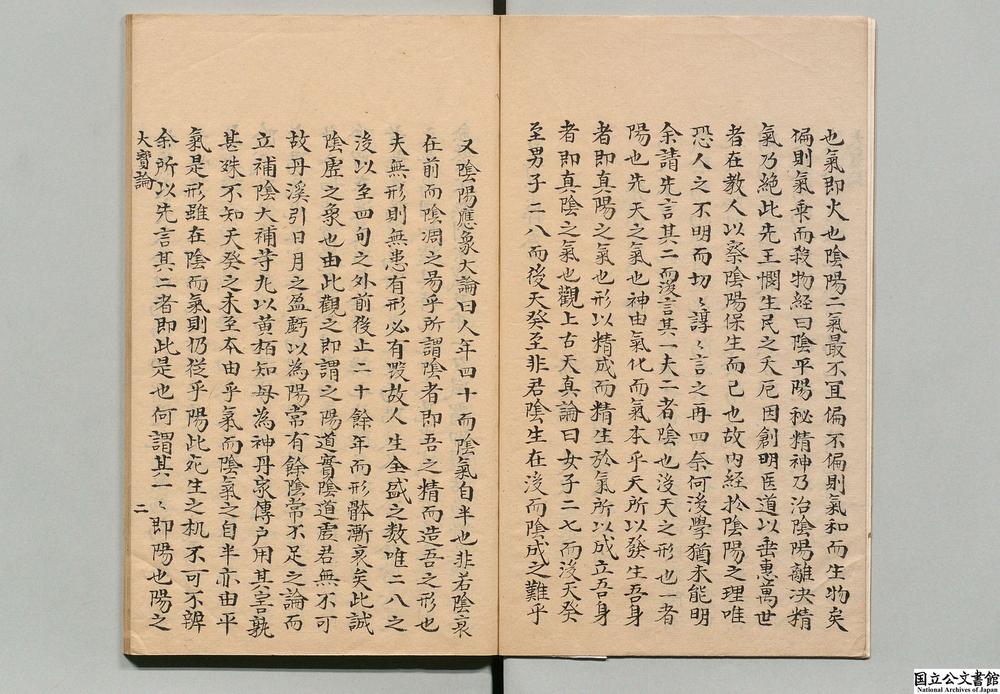 也氣即火也陰陽二氣最不宜偏不偏則氣和而生物矣
偏則氣乘而殺物經曰陰平陽秘精神乃治陰陽離決精
氣乃絕此先王憫生民之夭厄因創明医道以垂惠萬世
者在教人以察陰陽保生而已也故内經於陰陽之理唯
恐人之不明而切〻諄〻言之再四奈何後學猶未能明
余請先言其二而後言其一夫二者陰也後天之形也一者
陽也先天之氣也神由氣化而氣本乎天所以發生吾身
者即真陽之氣也形以精成而精生於氣所以成立吾身
者即真陰之氣也觀上古天真論曰女子二七而後天癸
至男子二八而後天癸至非君陰生在後而陰成之難乎
又陰陽應象大論曰人年四十而陰氣自半也非若陰衰
在前而陰凋之易乎所謂陰者即吾之精而造吾之形也
夫無形則無患有形必有毀故人生全盛之数唯二八之
後以至四旬之外前後止二十餘年而形骸漸衰矣此誠
陰虚之象也由此觀之即謂之陽道實陰道虚君無不可
故丹溪引日月之盈虧以為陽常有餘陰常不足之論而
立補陰大補等丸以黄栢知母為神丹家傳户用其害孰
甚殊不知天癸之未至本由乎氣而陰氣之自半亦由乎
氣是形雖在陰而氣則仍從乎陽此死生之机不可不辨
余所以先言其二者即此是也何謂其一〻即陽也陽之
大寶論
二
国立公文書館
National Archives of Japan